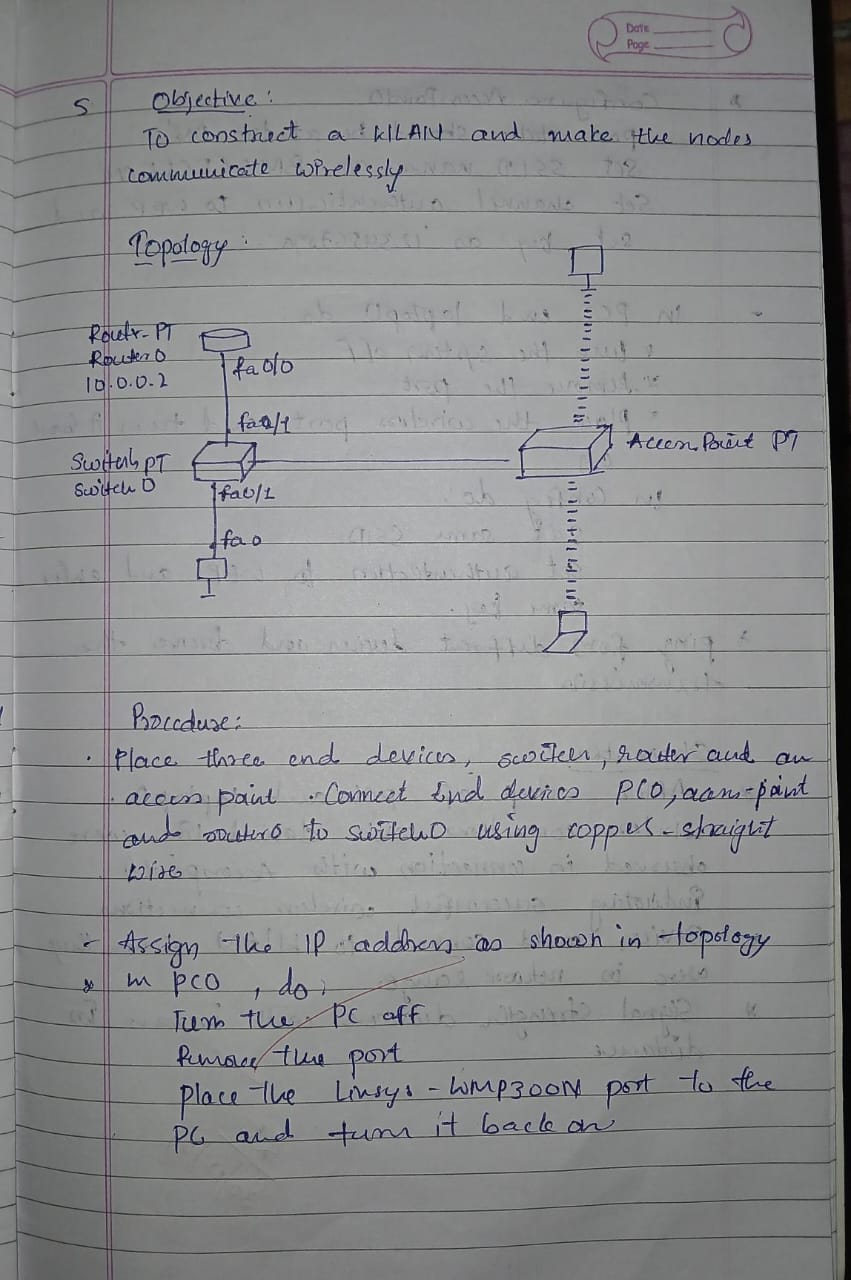 Date
Page
5 Objective:
To construct a WLAN and make the nodes
communicate wirelessly
Topology:
Router-PT
Router0
10.0.0.2
fa0/0
fa0/1
Switch PT
Switch 0
Access Point PT
fa0/1
fa0
Procedure:
. Place three end devices, switch, router and an
access point . Connect End devices PC0, access-point
and router0 to switch0 using copper-straight
wire
- Assign the IP address as shown in topology
* In PC0, do:
Turn the PC off
Remove the port
Place the Linsys-WMP300N port to the
PC and turn it back on